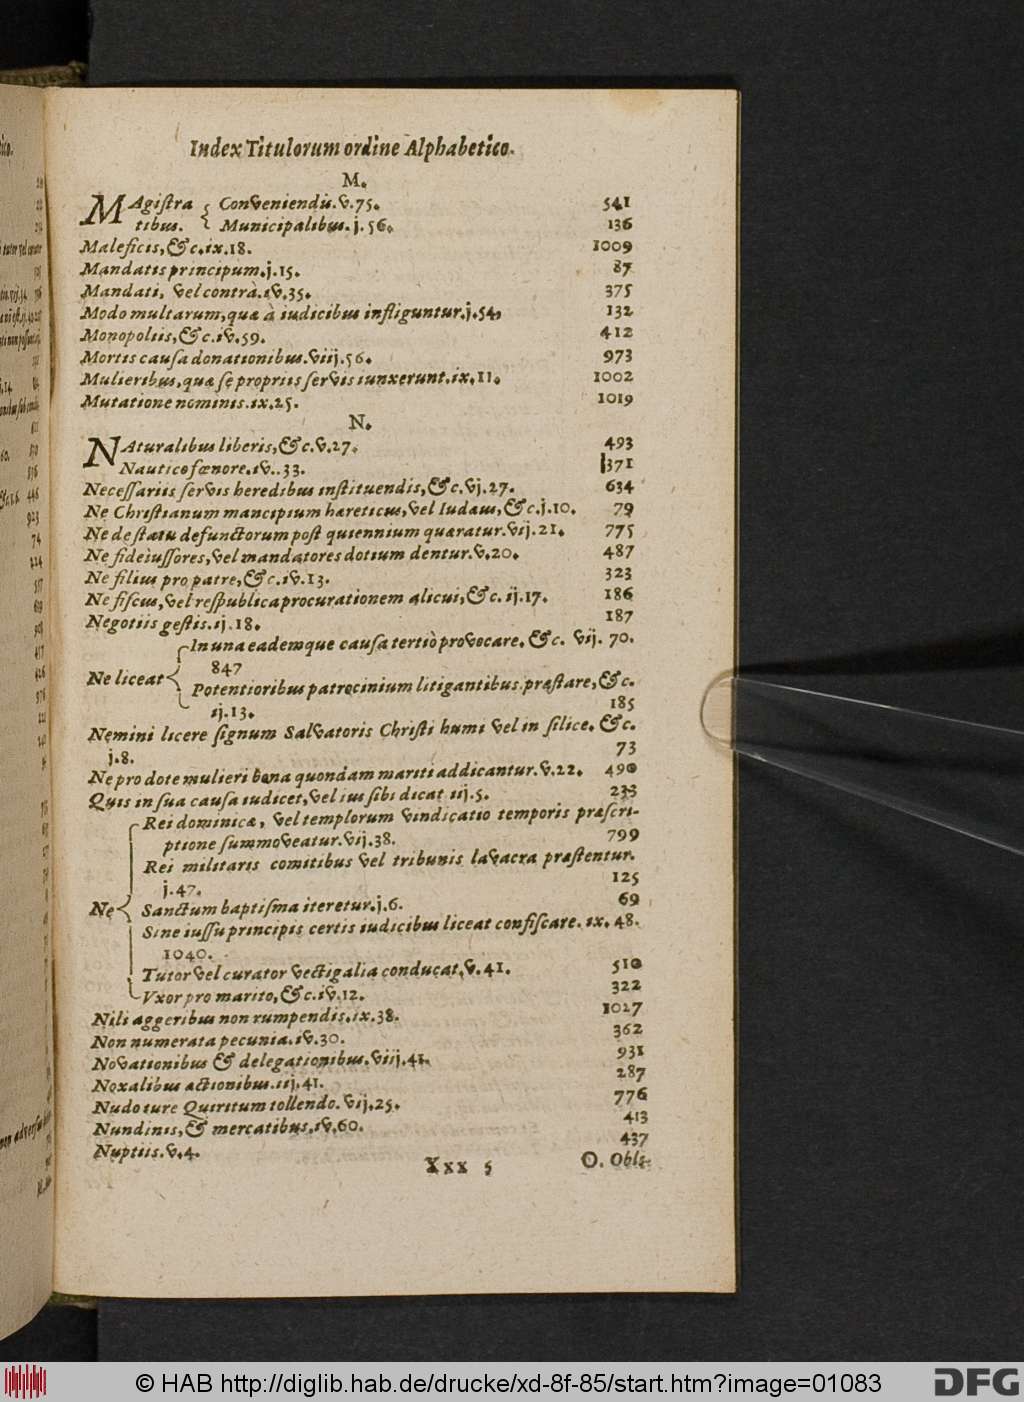 Index Titulorum ordine Alphabetico.
M.
MAgiſtra Conveniendis.v.75. 541
tibus. Municipalibus.j.56. 136
Maleficis,&c.ix.18. 1009
Mandatis principum.j.15. 87
Mandati, vel contrà.iv.35. 375
Modo multarum,quæ à iudicibus infliguntur.j.54. 132
Monopoliis,&c.iv.59. 412
Mortis cauſa donationibus.viij.56. 973
Mulieribus,quæ ſe propriis ſervis iunxerunt.ix.11. 1002
Mutatione nominis.ix.25. 1019
N.
NAturalibus liberis,&c.v.27. 493
Nautico fœnore.iv..33. 371
Neceſſariis ſervis heredibus inſtituendis,&c.vj.27. 634
Ne Chriſtianum mancipium hæreticus,vel Iudæus,&c.j.10. 79
Ne de ſtatu defunctorum poſt quiennium quæratur.vij.21. 775
Ne fideiuſſores,vel mandatores dotium dentur.v.20. 487
Ne filius pro patre,&c.iv.13. 323
Ne fiſcus,vel reſpublica procurationem alicui,&c.ij.17. 186
Negotiis geſtis.ij.18. 187
In una eademque cauſa tertiò provocare. &c. vij. 70.
847
Ne liceat
Potentioribus patrocinium litigantibus præſtare,&c.
ij.13. 185
Nemini licere ſignum Salvatoris Chriſti humi vel in ſilice. &c.
j.8. 73
Ne pro dote mulieri bona quondam mariti addicantur.v.22. 490
Quis in ſua cauſa iudicet,vel ius ſibi dicat iij.5. 233
Rei dominicæ, vel templorum vindicatio temporis præſcri-
ptione ſummoveatur.vij.38. 799
Rei militaris comitibus vel tribunis lavacra præſtentur.
j.47. 125
Ne Sanctum baptiſma iteretur.j.6. 69
Sine iuſſu principis certis iudicibus liceat confiſcare. ix. 48.
1040.
Tutor vel curator vectigalia conducat.v.41. 510
Vxor pro marito,&c.iv.12. 322
Nili aggeribus non rumpendis.ix.38. 1027
Non numerata pecunia.iv.30. 362
Novationibus & delegationibus.viij.41. 931
Noxalibus actionibus.iij.41. 287
Nudo iure Quiritum tollendo.vij.25. 776
Nundinis,& mercatibus.iv.60. 413
Nuptiis.v.4. 437
Xxx 5 O. Obla-
© HAB http://diglib.hab.de/drucke/xd-8f-85/start.htm?image=01083
DFG